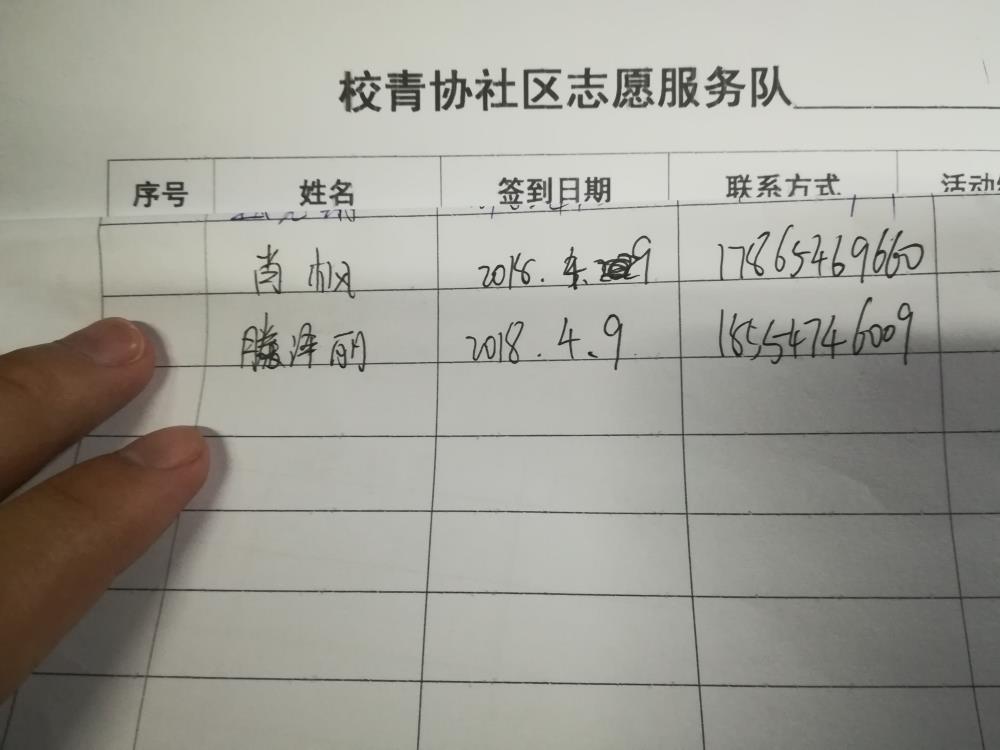 校青协社区志愿服务队
序号 姓名 签到日期 联系方式 活动
肖枫 2018.4.9 17865469660
滕泽丽 2018.4.9 18554746009